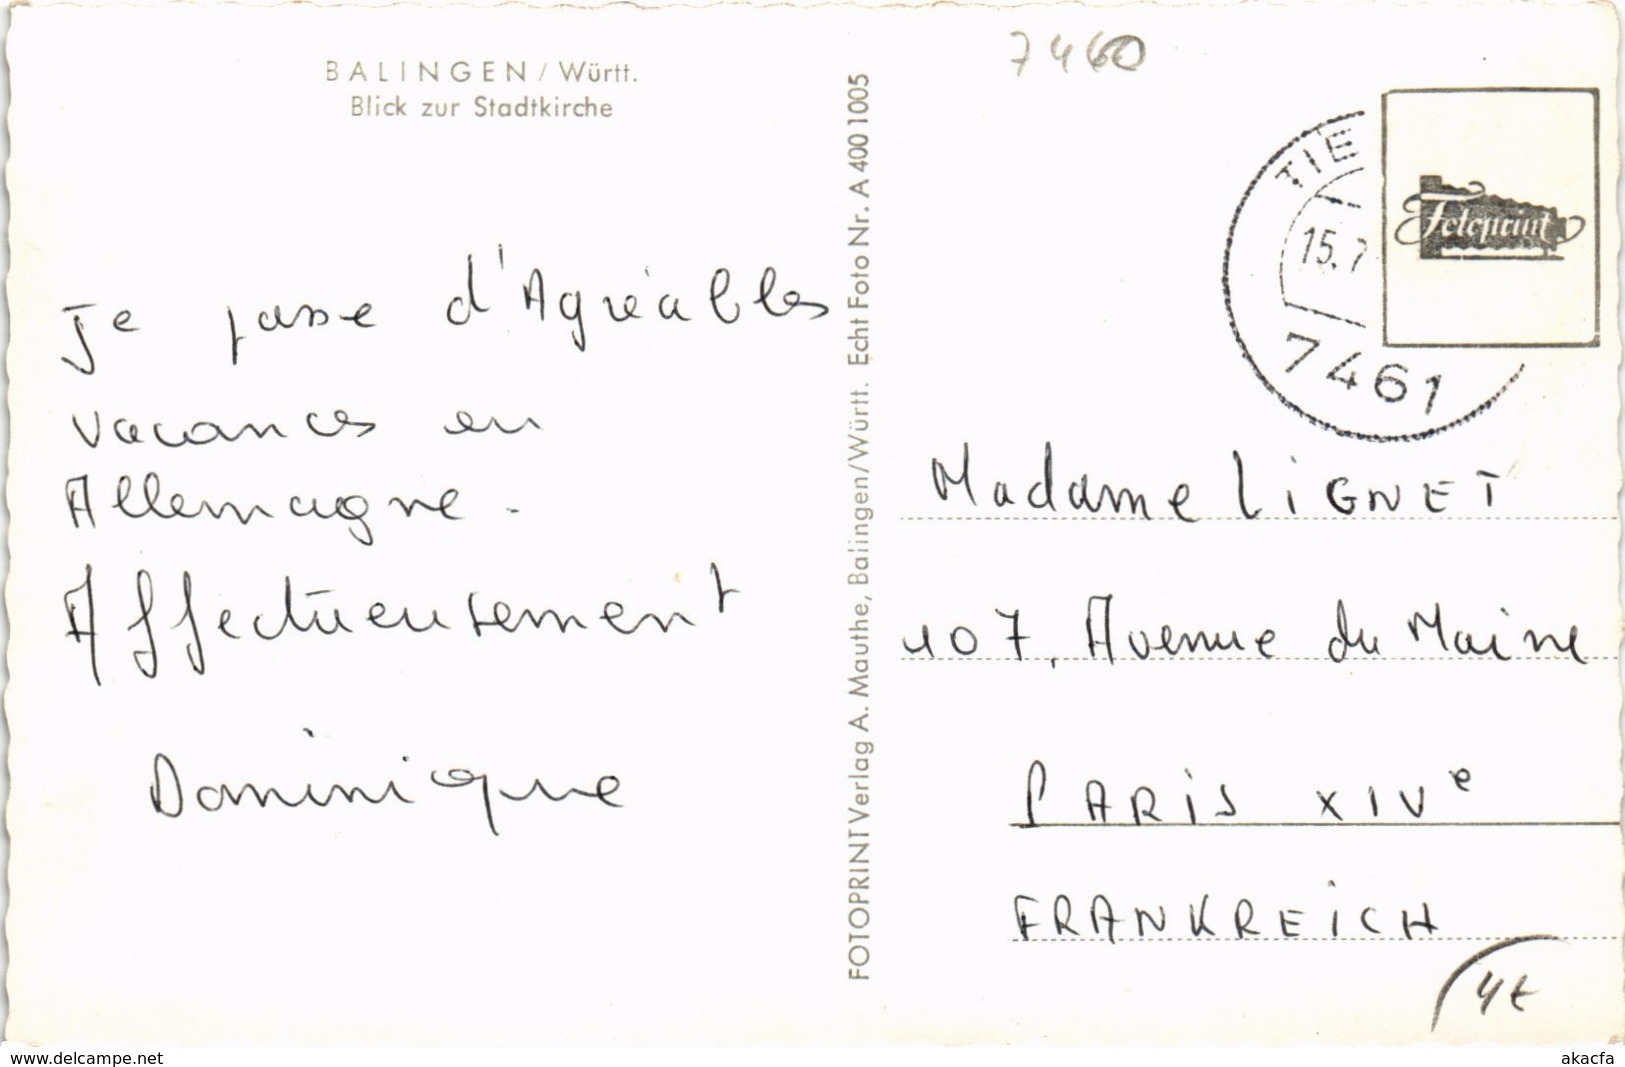 BALINGEN / Württ.
Blick zur Stadtkirche
Je passe d'Agréables
vacances en
Allemagne.
Affectueusement
Dominique
FOTOPRINT Verlag A. Mauthe, Balingen/Württ. Echt Foto Nr. A 400 1005
7460
TIE
15.7
7461
Fotoprint
Madame LIGNET
107, Avenue du Maine
PARIS XIVe
FRANKREICH
4€
www.delcampe.net
akacfa